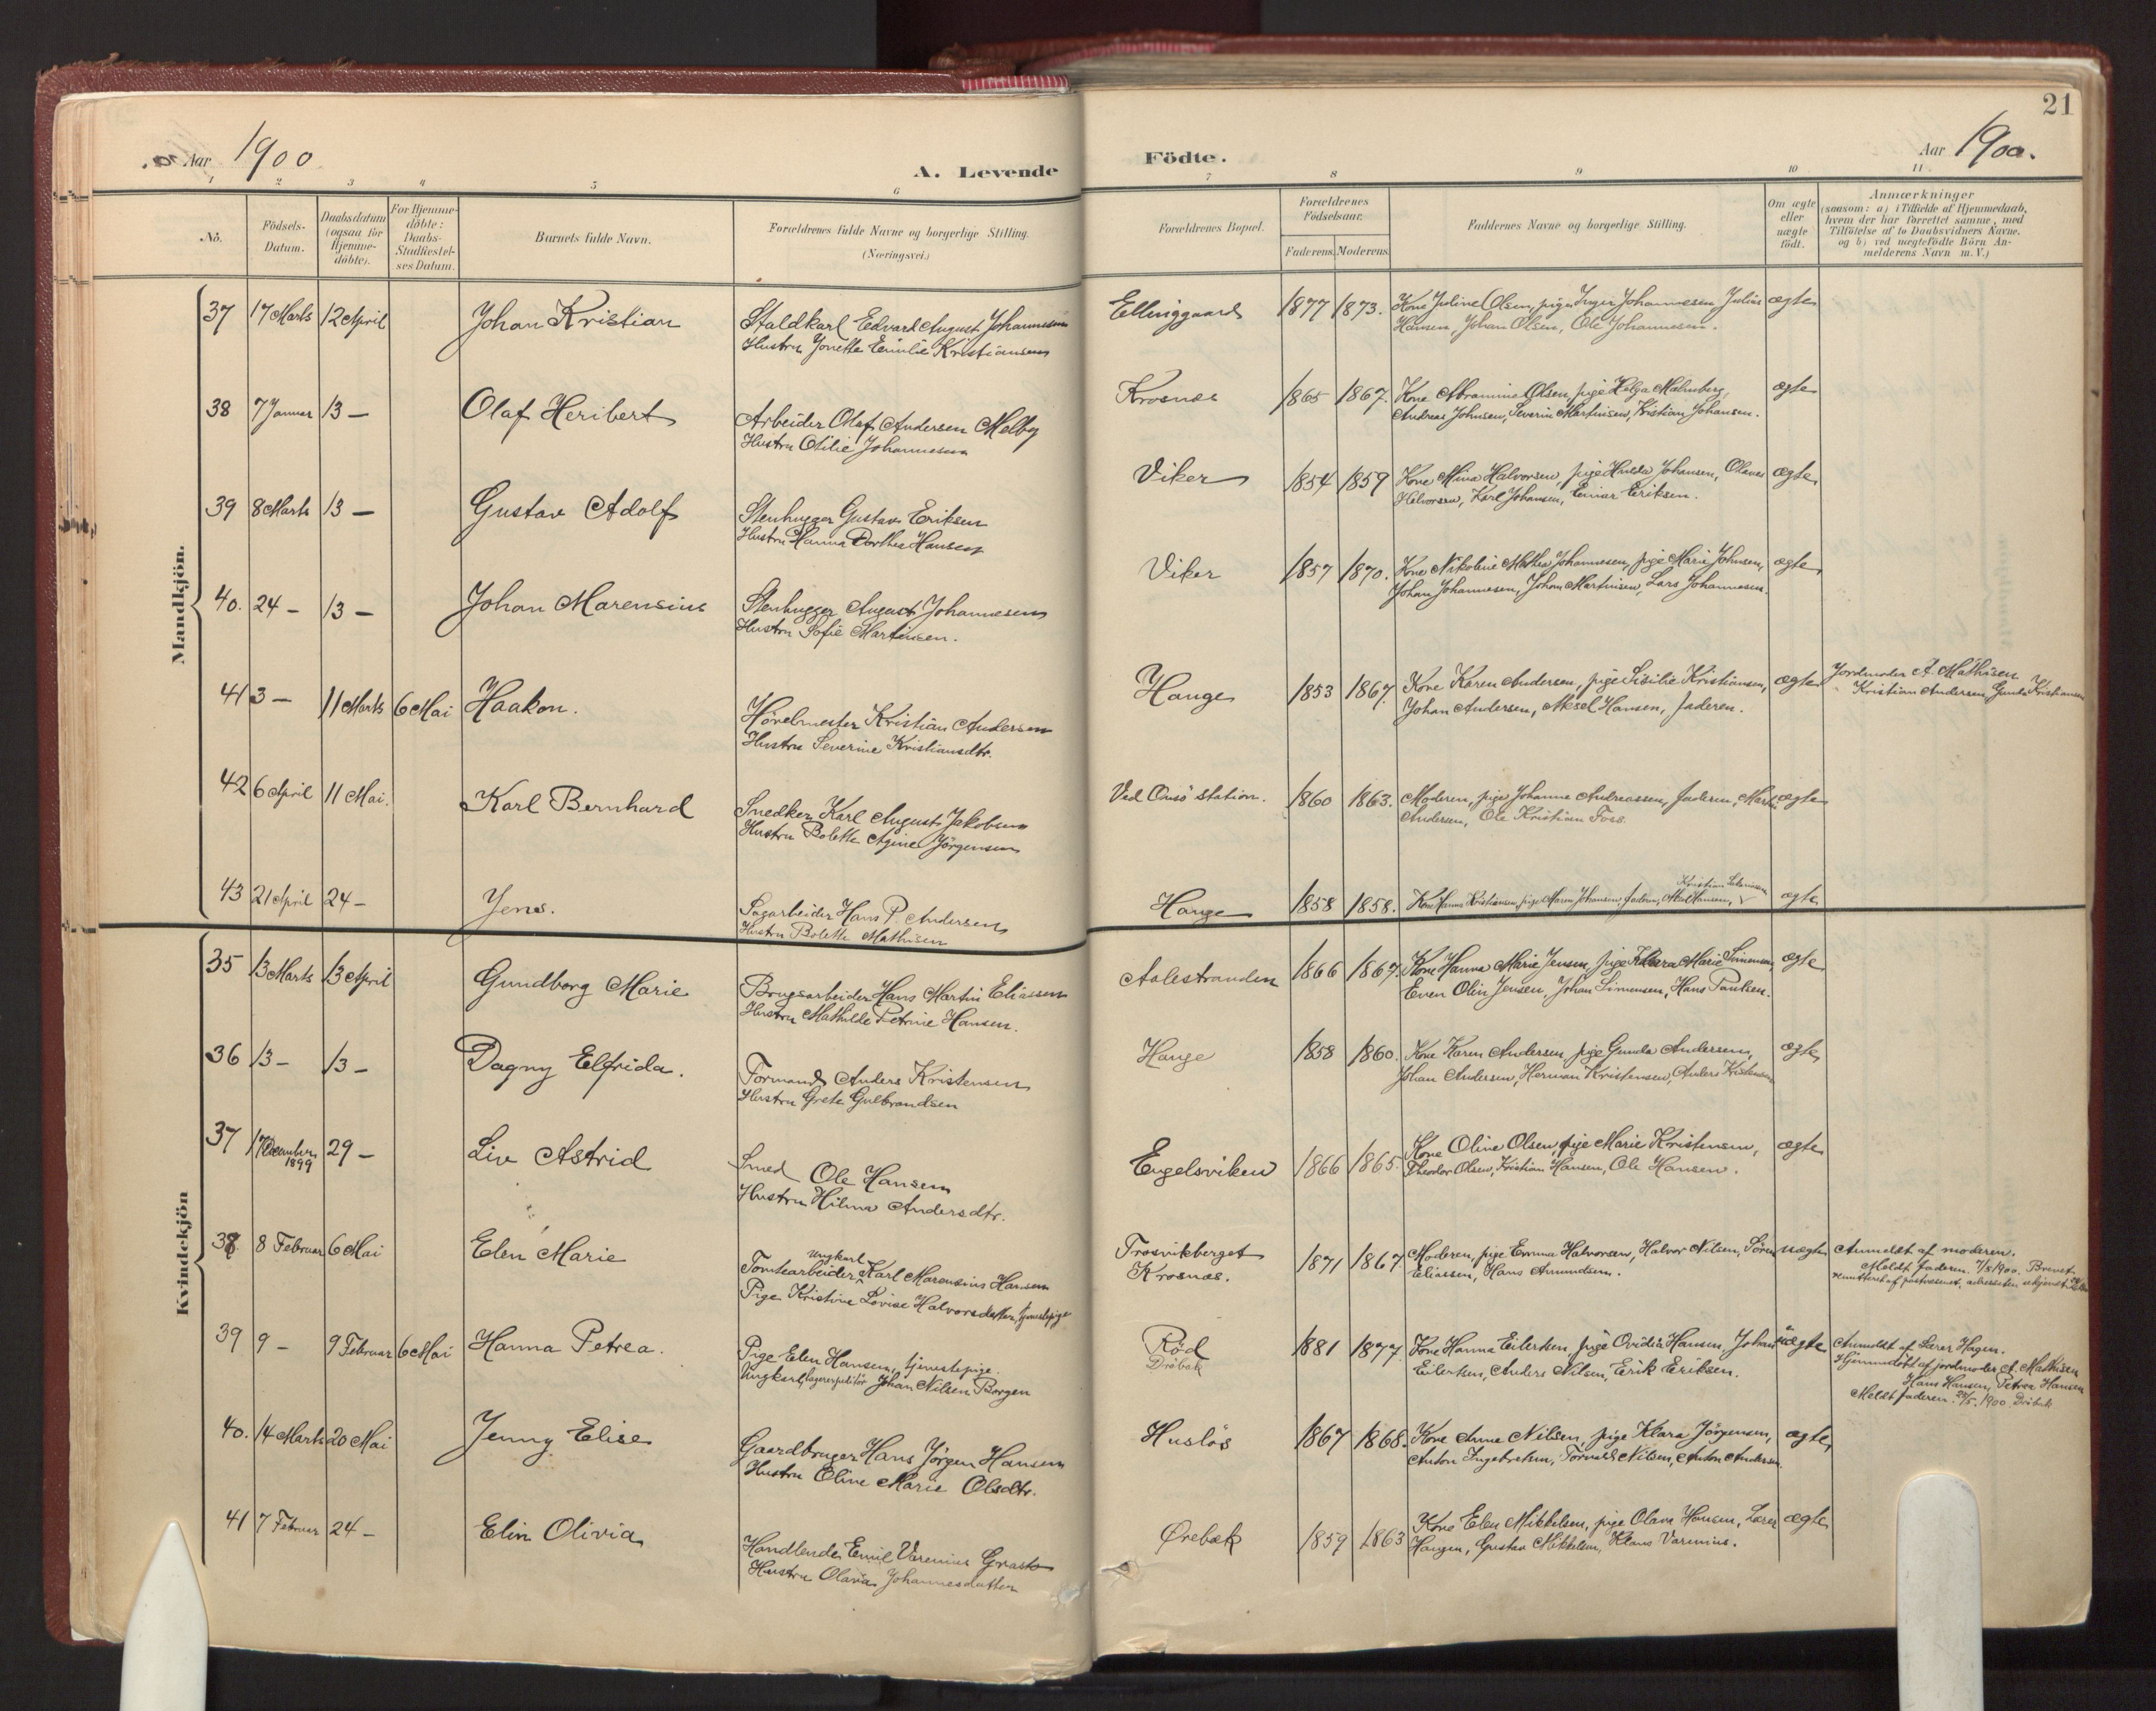 21
Aar 1900.
A. Levende
Födte.
Aar 1900.
1 2 3 4 5 6
7 8 9 10 11
No.
Födsels-
Datum.
Daabsdatum
(ogsaa for
Hjemme-
döbte).
For Hjemme-
döbte:
Daabs-
Stadfæstel-
ses Datum.
Barnets fulde Navn.
Forældrenes fulde Navne og borgerlige Stilling.
(Næringsvei.)
Forældrenes Bopæl.
Forældrenes
Födselsaar.
Faderens. Moderens.
Faddernes Navne og borgerlige Stilling.
Om ægte
eller
uægte
født.
Anmærkninger
(saasom: a) i Tilfælde af Hjemmedaab,
hvem der har forrettet samme, med
Tilföielse af to Daabsvidners Navne.
og b) ved uægtefödte Börn An-
melderens Navn m. V.)
Mandkjön.
37 17 Marts 12 April Johan Kristian Staldkarl Edvard August Johannesen
Hustru Jonette Emilie Kristiansen
Ellinggaard 1877 1873. Kone Juline Olsen, pige Inger Johannesen, Julius ægte
Hansen, Johan Olsen, Ole Johannesen.
38 7 Januar 13 — Olaf Heribert Arbeider Olaf Andersen Melby
Hustru Otilie Johannesen
Krosnes 1865 1867. Kone Abramine Olsen, pige Helga Malmberg, ægte
Andreas Johnsen, Severin Martinisen, Kristian Johansen.
39 8 Marts 13 — Gustav Adolf Stenhugger Gustav Eriksen
Hustru Hanna Dorthea Hansen
Viker 1854 1859 Kone Mina Halvorsen, pige Hulda Johansen, Olaves ægte
Halvorsen, Karl Johansen, Einar Eriksen.
40. 24 — 13 — Johan Marensius Stenhugger August Johannesen
Hustru Sofie Martinsen.
Viker 1857 1870. Kone Nikoline Mathea Johannesen, pige Marie Johnsen, ægte
Johan Johannesen, Johan Martinisen, Lars Johannesen.
41 3 — 11 Marts 6 Mai Haakon. Hövelmester Kristian Andersen
Hustru Severine Kristiansdtr.
Hauge 1853 1867. Kone Karen Andersen, pige Sisilie Kristiansen, ægte Jordmoder A. Mathisen
Johan Andersen, Aksel Hansen, faderen. Kristian Andersen, Gunda Kristiansen
42 6 April 11 Mai. Karl Bernhard Snedker Karl August Jakobsen
Hustru Bolette Agine Jörgensen
Ved Onsö station. 1860 1863. Moderen, pige Johanne Andreassen, faderen, ægte
Andersen, Ole Kristian Foss.
43 21 April 24 — Jens. Sagarbeider Hans P. Andersen
Hustru Bolette Mathisen
Kristian
Hauge 1858 1858. Kone Hanna Kristiansen, pige Maren Johansen, faderen, Hansen, ægte
Kvindekjön
35 13 Marts 13 April Gundborg Marie Brugsarbeider Hans Martin Eliassen
Hustru Mathilde Petrine Hansen.
Aalestranden 1866 1867. Kone Hanna Marie Jensen, pige Klara Marie Simensen, ægte
Even Olin Jensen, Johan Simensen, Hans Paulsen.
36 13 — 13 — Dagny Elfrida. Formand Anders Kristensen
Hustru Grete Gulbrandsen
Hauge 1858 1860. Kone Karen Andersen, pige Gunda Andersen, ægte
Johan Andersen, Herman Kristensen, Anders Kristensen
37 17 December 1899 29 — Liv Astrid Smed Ole Hansen
Hustru Hilma Andersdtr.
Engelsviken 1866 1865. Kone Oline Olsen, pige Marie Kristensen, ægte
Theodor Olsen, Kristian Hansen, Ole Hansen.
38. 8 Februar 6 Mai Elen Marie ungkarl
Tomtearbeider Karl Marensius Hansen
Pige Kristine Lovise Halvorsdatter, tjenestepige
Trosvikberget 1871 1867 Moderen, pige Emma Halvorsen, Halvor Nilsen, Sören uægte Anmeldt af moderen.
Krosnes. Eliassen, Hans Amundsen. Meldt faderen. 7/5 1900. Brevet
39 9 — 9 Februar 6 Mai Hanna Petrea. Pige Elen Hansen, tjenestepige.
Ungkarl, lagerexpeditör Johan Nilsen Borgen
Röd 1881 1877. Kone Hanna Eilertsen, pige Ovidia Hansen, Johan uægte Anmeldt af Lærer Hagen.
Dröbak Eilertsen, Anders Nilsen, Erik Eriksen. Hjemmedöbt af jordmoder A. Mathisen
Hans Hansen, Petrea Hansen
Meldt faderen. 22/5. 1900. Dröbak
40. 14 Marts 20 Mai Jenny Elise Gaardbruger Hans Jörgen Hansen
Hustru Oline Marie Olsdtr.
Huslös 1867 1868. Kone Anne Nilsen, pige Klara Jörgensen, ægte
Anton Ingebretsen, Torvald Nilsen, Anton Andersen.
41 7 Februar 24 — Elin Olivia Handlende Emil Varenius Graste
Hustru Olava Johannesdatter
Ørebæk 1859 1863 Kone Elen Mikkelsen, pige Olava Hansen, Lærer ægte
Haugen, Gustav Mikkelsen, Klaus Varenius.